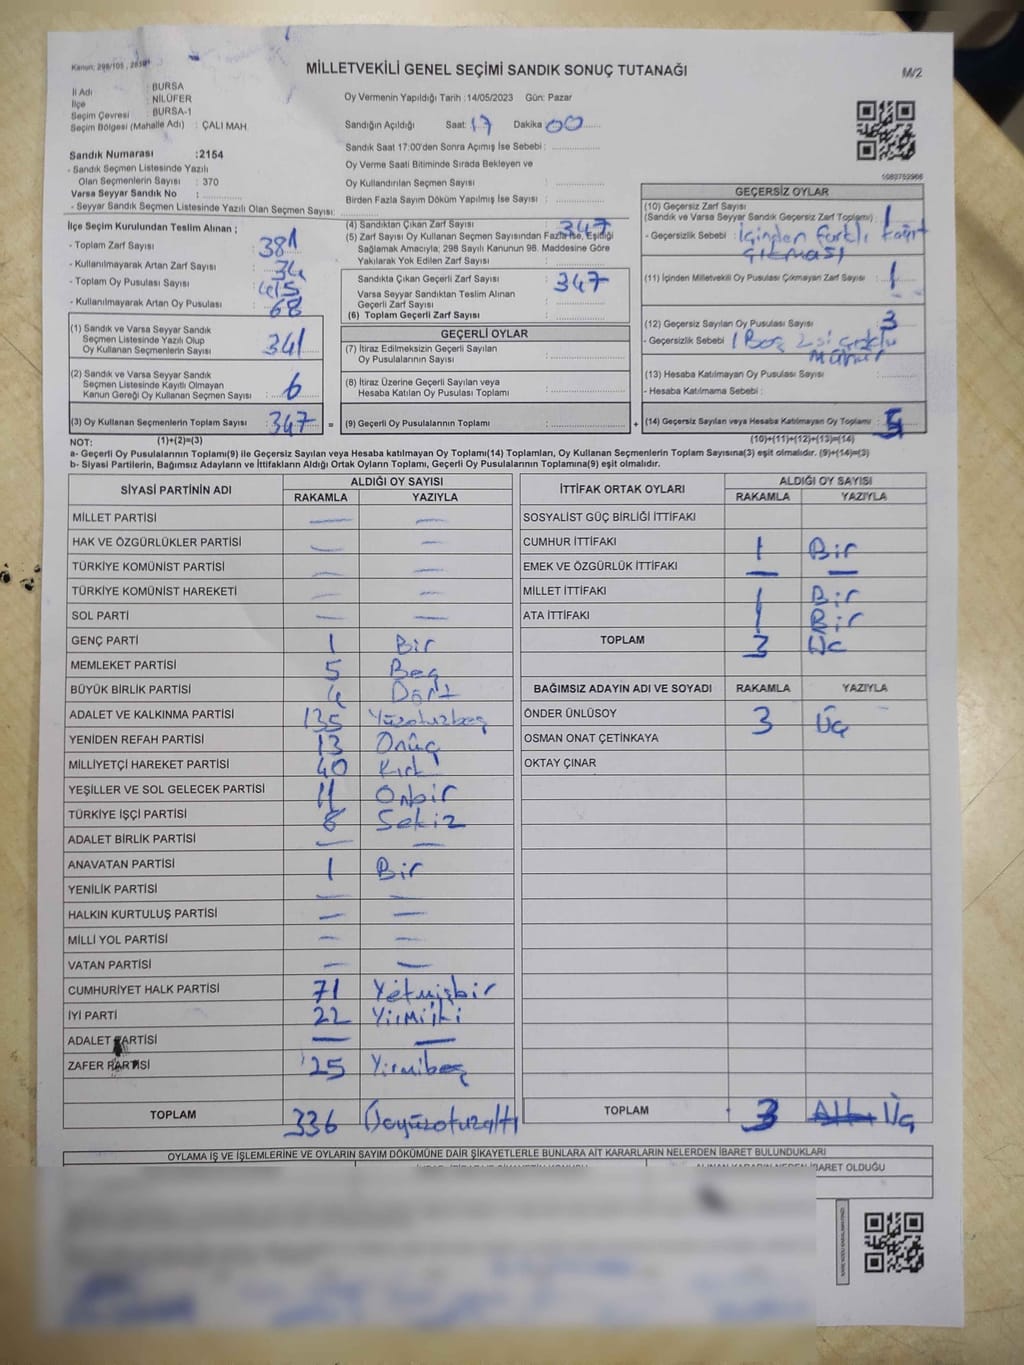 Kanun: 298/105
MİLLETVEKİLİ GENEL SEÇİMİ SANDIK SONUÇ TUTANAĞI
M/2
İl Adı : BURSA
İlçe : NİLÜFER
Seçim Çevresi : BURSA-1
Seçim Bölgesi (Mahalle Adı) : ÇALI MAH.
Oy Vermenin Yapıldığı Tarih :14/05/2023 Gün: Pazar
Sandığın Açıldığı Saat: 17 Dakika 00
Sandık Saat 17:00'den Sonra Açımış İse Sebebi :
Oy Verme Saati Bitiminde Sırada Bekleyen ve
Oy Kullandırılan Seçmen Sayısı
Birden Fazla Sayım Döküm Yapılmış İse Sayısı
Sandık Numarası :2154
- Sandık Seçmen Listesinde Yazılı
Olan Seçmenlerin Sayısı : 370
Varsa Seyyar Sandık No :
- Seyyar Sandık Seçmen Listesinde Yazılı Olan Seçmen Sayısı:
İlçe Seçim Kurulundan Teslim Alınan ;
- Toplam Zarf Sayısı : 381
- Kullanılmayarak Artan Zarf Sayısı : 34
- Toplam Oy Pusulası Sayısı : 415
- Kullanılmayarak Artan Oy Pusulası : 68
(1) Sandık ve Varsa Seyyar Sandık
Seçmen Listesinde Yazılı Olup
Oy Kullanan Seçmenlerin Sayısı : 341
(2) Sandık ve Varsa Seyyar Sandık
Seçmen Listesinde Kayıtlı Olmayan
Kanun Gereği Oy Kullanan Seçmen Sayısı : 6
(3) Oy Kullanan Seçmenlerin Toplam Sayısı : 347 =
(4) Sandıktan Çıkan Zarf Sayısı 347
(5) Zarf Sayısı Oy Kullanan Seçmen Sayısından Fazla İse, Eşitliği
Sağlamak Amacıyla; 298 Sayılı Kanunun 98. Maddesine Göre
Yakılarak Yok Edilen Zarf Sayısı
Sandıkta Çıkan Geçerli Zarf Sayısı : 347
Varsa Seyyar Sandıktan Teslim Alınan
Geçerli Zarf Sayısı
(6) Toplam Geçerli Zarf Sayısı
GEÇERLİ OYLAR
(7) İtiraz Edilmeksizin Geçerli Sayılan
Oy Pusulalarının Sayısı
(8) İtiraz Üzerine Geçerli Sayılan veya
Hesaba Katılan Oy Pusulası Toplamı
(9) Geçerli Oy Pusulalarının Toplamı +
1080752966
GEÇERSİZ OYLAR
(10) Geçersiz Zarf Sayısı
(Sandık ve Varsa Seyyar Sandık Geçersiz Zarf Toplamı) : 1
- Geçersizlik Sebebi : İçinden farklı kağıt
çıkması
(11) İçinden Milletvekili Oy Pusulası Çıkmayan Zarf Sayısı : 1
(12) Geçersiz Sayılan Oy Pusulası Sayısı 3
- Geçersizlik Sebebi 1 Boş 2si çoklu
Mühür
(13) Hesaba Katılmayan Oy Pusulası Sayısı
- Hesaba Katılmama Sebebi :
(14) Geçersiz Sayılan veya Hesaba Katılmayan Oy Toplamı : 5
NOT: (1)+(2)=(3) (10)+(11)+(12)+(13)=(14)
a- Geçerli Oy Pusulalarının Toplamı(9) ile Geçersiz Sayılan veya Hesaba katılmayan Oy Toplamı(14) Toplamları, Oy Kullanan Seçmenlerin Toplam Sayısına(3) eşit olmalıdır. (9)+(14)=(3)
b- Siyasi Partilerin, Bağımsız Adayların ve İttifakların Aldığı Ortak Oyların Toplamı, Geçerli Oy Pusulalarının Toplamına(9) eşit olmalıdır.
SİYASİ PARTİNİN ADI ALDIĞI OY SAYISI
RAKAMLA YAZIYLA
MİLLET PARTİSİ — —
HAK VE ÖZGÜRLÜKLER PARTİSİ — —
TÜRKİYE KOMÜNİST PARTİSİ — —
TÜRKİYE KOMÜNİST HAREKETİ — —
SOL PARTİ — —
GENÇ PARTİ 1 Bir
MEMLEKET PARTİSİ 5 Beş
BÜYÜK BİRLİK PARTİSİ 4 Dört
ADALET VE KALKINMA PARTİSİ 135 Yüzotuzbeş
YENİDEN REFAH PARTİSİ 13 Onüç
MİLLİYETÇİ HAREKET PARTİSİ 40 Kırk
YEŞİLLER VE SOL GELECEK PARTİSİ 11 Onbir
TÜRKİYE İŞÇİ PARTİSİ 8 Sekiz
ADALET BİRLİK PARTİSİ — —
ANAVATAN PARTİSİ 1 Bir
YENİLİK PARTİSİ — —
HALKIN KURTULUŞ PARTİSİ — —
MİLLİ YOL PARTİSİ — —
VATAN PARTİSİ — —
CUMHURİYET HALK PARTİSİ 71 Yetmişbir
İYİ PARTİ 22 Yirmiiki
ADALET PARTİSİ — —
ZAFER PARTİSİ 25 Yirmibeş
TOPLAM 336 Üçyüzotuzaltı
İTTİFAK ORTAK OYLARI ALDIĞI OY SAYISI
RAKAMLA YAZIYLA
SOSYALİST GÜÇ BİRLİĞİ İTTİFAKI
CUMHUR İTTİFAKI 1 Bir
EMEK VE ÖZGÜRLÜK İTTİFAKI — —
MİLLET İTTİFAKI 1 Bir
ATA İTTİFAKI 1 Bir
TOPLAM 3 Üç
BAĞIMSIZ ADAYIN ADI VE SOYADI RAKAMLA YAZIYLA
ÖNDER ÜNLÜSOY 3 Üç
OSMAN ONAT ÇETİNKAYA
OKTAY ÇINAR
TOPLAM 3 Altı Üç
OYLAMA İŞ VE İŞLEMLERİNE VE OYLARIN SAYIM DÖKÜMÜNE DAİR ŞİKAYETLERLE BUNLARA AİT KARARLARIN NELERDEN İBARET BULUNDUKLARI
ALINAN KARARIN NEDEN İBARET OLDUĞU